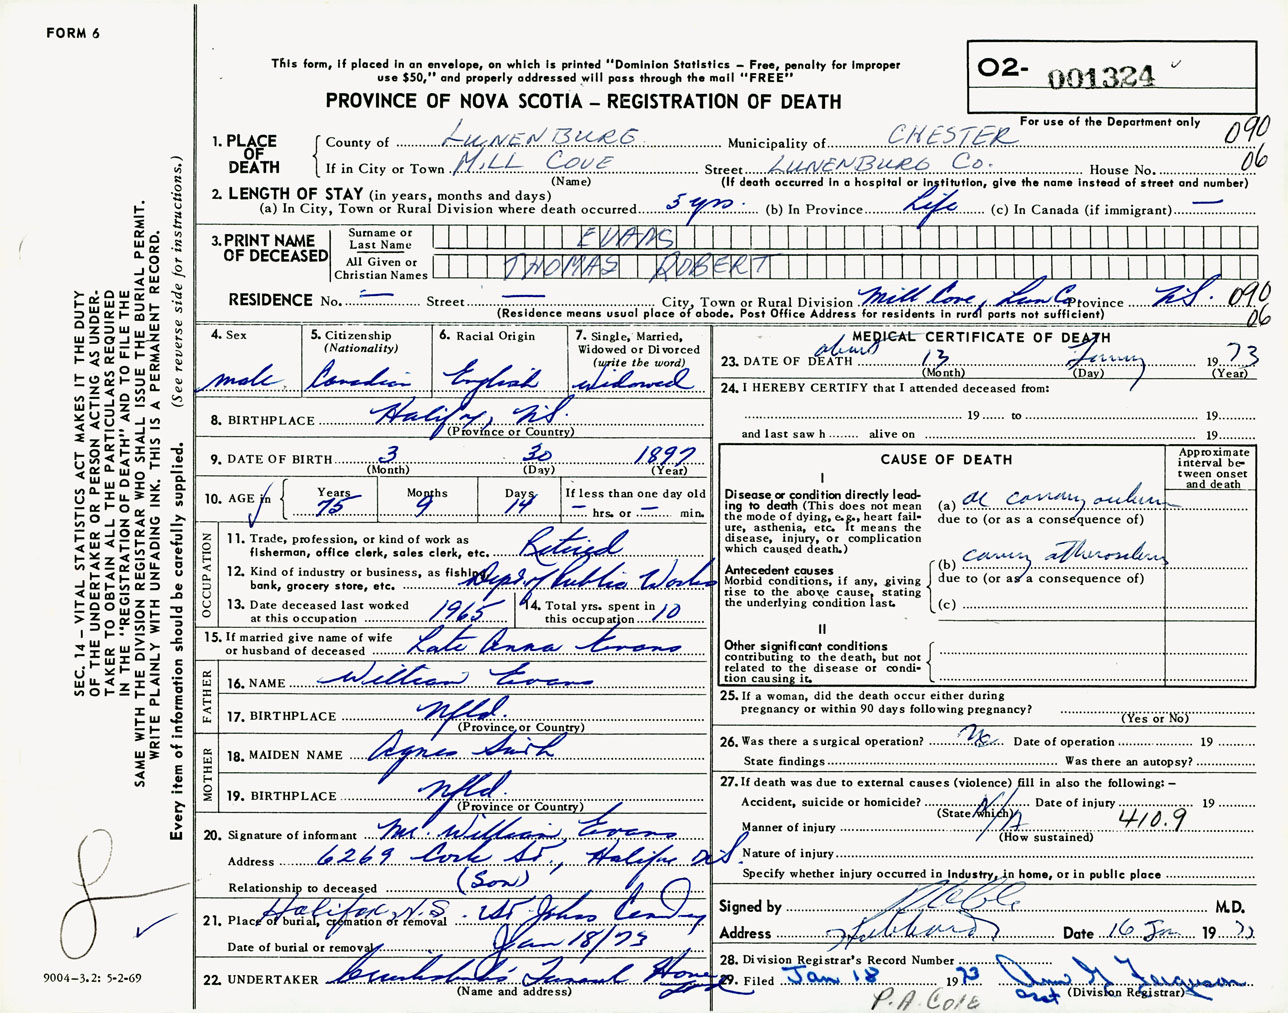 FORM 6
This form, if placed in an envelope, on which is printed "Dominion Statistics – Free, penalty for improper
use $50," and properly addressed will pass through the mail "FREE"
PROVINCE OF NOVA SCOTIA – REGISTRATION OF DEATH
O2- 001324
For use of the Department only
090
06
1. PLACE OF DEATH
County of LUNENBURG Municipality of CHESTER
If in City or Town MILL COVE Street LUNENBURG CO. House No.
(Name) (If death occurred in a hospital or institution, give the name instead of street and number)
2. LENGTH OF STAY (in years, months and days)
(a) In City, Town or Rural Division where death occurred 5 yrs. (b) In Province Life (c) In Canada (if immigrant) —
3. PRINT NAME OF DECEASED
Surname or Last Name EVANS
All Given or Christian Names THOMAS ROBERT
RESIDENCE No. — Street — City, Town or Rural Division Mill Cove, Lun Co Province N.S. 090
(Residence means usual place of abode. Post Office Address for residents in rural parts not sufficient) 06
4. Sex
male
5. Citizenship
(Nationality)
Canadian
6. Racial Origin
English
7. Single, Married,
Widowed or Divorced
(write the word)
Widowed
8. BIRTHPLACE Halifax, N.S.
(Province or Country)
9. DATE OF BIRTH 3 30 1897
(Month) (Day) (Year)
10. AGE in
Years Months Days If less than one day old
75 9 14 – hrs. or – min.
OCCUPATION
11. Trade, profession, or kind of work as
fisherman, office clerk, sales clerk, etc. Retired
12. Kind of industry or business, as fishing,
bank, grocery store, etc. Dept. of Public Works
13. Date deceased last worked
at this occupation 1965
14. Total yrs. spent in
this occupation 10
15. If married give name of wife
or husband of deceased Late Anna Evans
FATHER
16. NAME William Evans
17. BIRTHPLACE Nfld.
(Province or Country)
MOTHER
18. MAIDEN NAME Agnes Smith
19. BIRTHPLACE Nfld.
(Province or Country)
20. Signature of informant Mr. William Evans
Address 6269 Cork St., Halifax N.S.
Relationship to deceased (Son)
21. Place of burial, cremation or removal Halifax, N.S. St. Johns
Date of burial or removal Jan 18/73
22. UNDERTAKER Funeral Home
(Name and address)
MEDICAL CERTIFICATE OF DEATH
23. DATE OF DEATH about 13 1973
(Month) (Day) (Year)
24. I HEREBY CERTIFY that I attended deceased from:
19 to 19
and last saw h alive on 19
CAUSE OF DEATH
Approximate
interval between onset
and death
I
Disease or condition directly leading to death (This does not mean
the mode of dying, e.g., heart failure, asthenia, etc. It means the
disease, injury, or complication
which caused death.)
(a) coronary
due to (or as a consequence of)
Antecedent causes
Morbid conditions, if any, giving
rise to the above cause, stating
the underlying condition last.
(b) coronary
due to (or as a consequence of)
(c)
II
Other significant conditions
contributing to the death, but not
related to the disease or condition causing it.
25. If a woman, did the death occur either during
pregnancy or within 90 days following pregnancy?
(Yes or No)
26. Was there a surgical operation? No Date of operation 19
State findings Was there an autopsy?
27. If death was due to external causes (violence) fill in also the following: –
Accident, suicide or homicide? N/A Date of injury 19
(State which)
Manner of injury 410.9
(How sustained)
Nature of injury
Specify whether injury occurred in Industry, in home, or in public place
Signed by M.D.
Address Hubbards Date 16 Jan 1973
28. Division Registrar's Record Number
29. Filed Jan 18 1973 Ferguson
(Division Registrar)
P.A. Cole
SEC. 14 – VITAL STATISTICS ACT MAKES IT THE DUTY
OF THE UNDERTAKER OR PERSON ACTING AS UNDERTAKER TO OBTAIN ALL THE PARTICULARS REQUIRED
IN THE "REGISTRATION OF DEATH" AND TO FILE THE
SAME WITH THE DIVISION REGISTRAR WHO SHALL ISSUE THE BURIAL PERMIT.
WRITE PLAINLY WITH UNFADING INK. THIS IS A PERMANENT RECORD.
Every item of information should be carefully supplied. (See reverse side for instructions.)
9004–3.2: 5-2-69